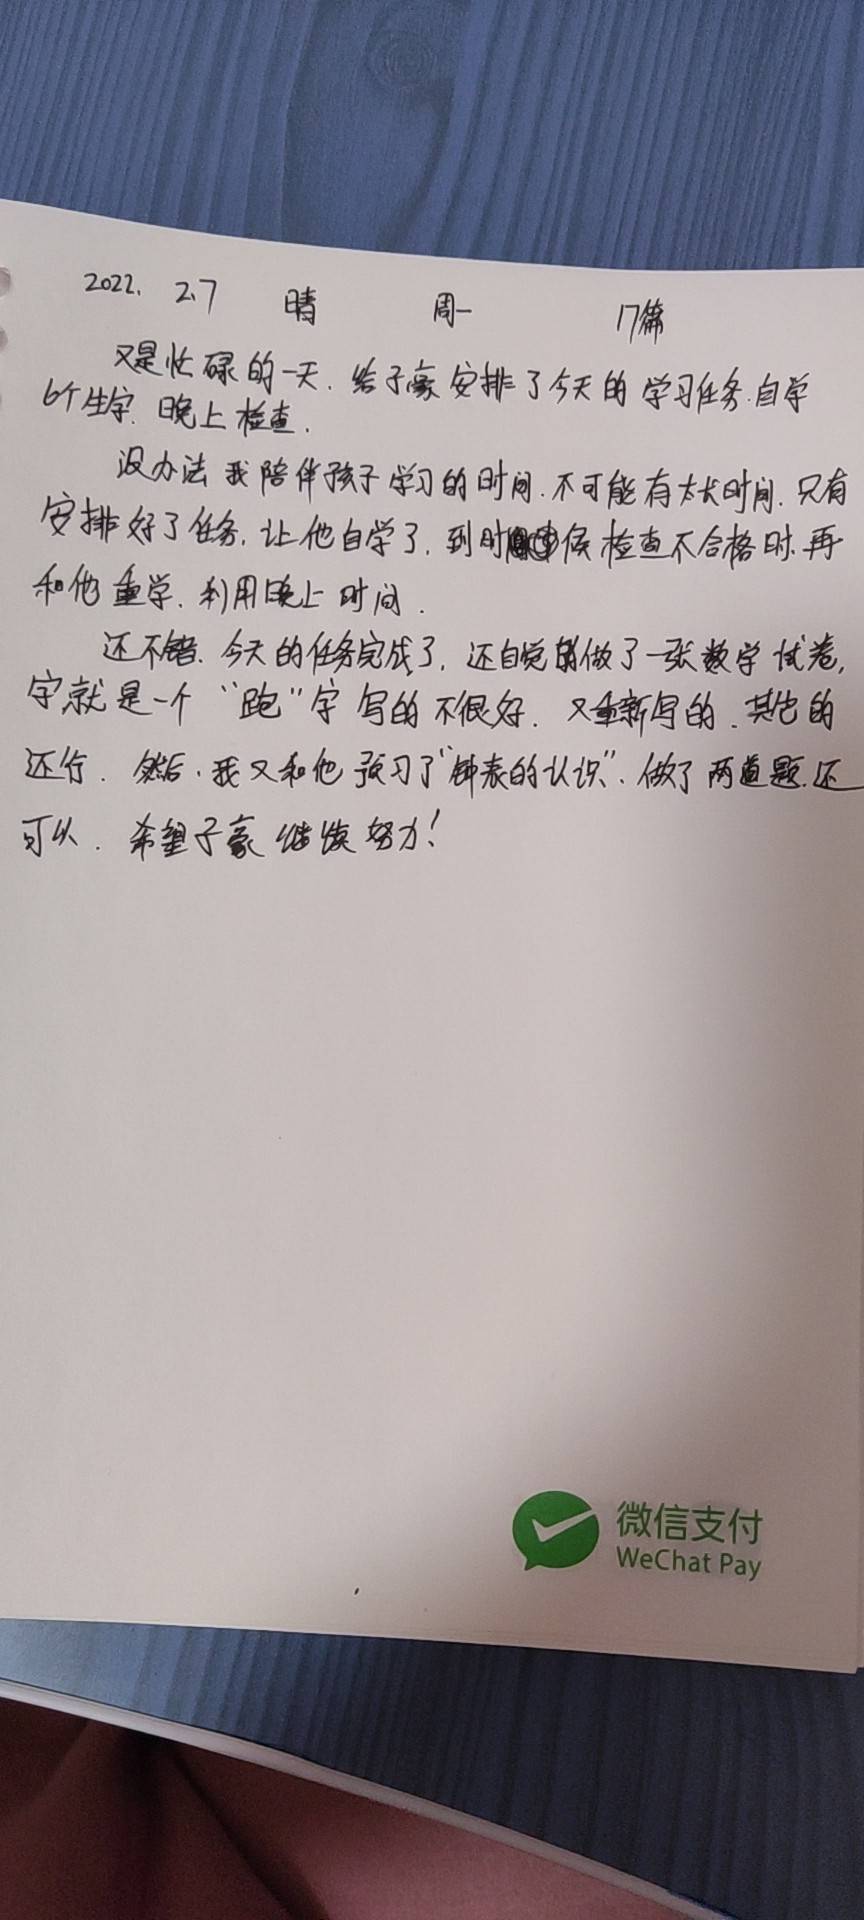 2022. 2.7 晴 周一 17篇
又是忙碌的一天.给子豪安排了今天的学习任务.自学
6个生字.晚上检查.
没办法我陪伴孩子学习的时间.不可能有太长时间.只有
安排好了任务.让他自学了.到时候检查不合格时.再
和他重学.利用晚上时间.
还不错.今天的任务完成了,还自觉的做了一张数学试卷,
字就是一个“跑”字写的不很好.又重新写的.其它的
还行.然后.我又和他预习了“钟表的认识”.做了两道题.还
可以.希望子豪继续努力!
微信支付
WeChat Pay